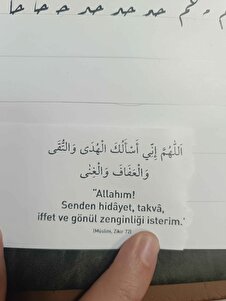 اَللّٰهُمَّ إِنِّي أَسْأَلُكَ الْهُدَى وَالتُّقَى
وَالْعَفَافَ وَالْغِنَى
"Allahım!
Senden hidâyet, takvâ,
iffet ve gönül zenginliği isterim."
(Müslim, Zikir 72)